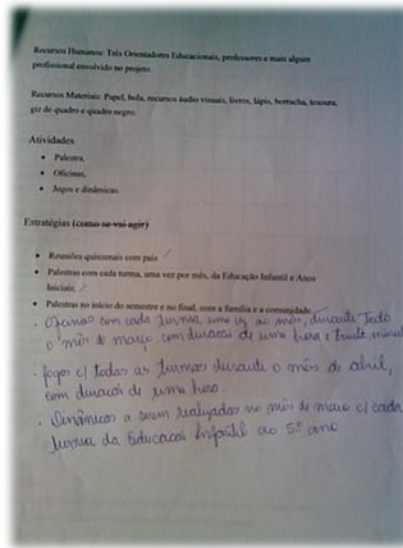 Recursos Humanos: Três Orientadores Educacionais, professores e mais algum
profissional envolvido no projeto.
Recursos Materiais: Papel, bola, recursos áudio visuais, livros, lápis, borracha, tesoura,
giz de quadro e quadro negro.
Atividades
• Palestra,
• Oficinas,
• Jogos e dinâmicas.
Estratégias (como se vai agir)
• Reuniões quinzenais com pais
• Palestras com cada turma, uma vez por mês, da Educação Infantil e Anos
Iniciais,
• Palestras no início do semestre e no final, com a família e a comunidade.
. Oficinas com cada turma uma vez ao mês, durante todo
o mês de março com duracai de uma hora e trinta minut
. Jogos c/ todas as turmas durante o mês de abril,
com duracai de uma hora.
. Dinâmicas a serem realizadas no mês de maio c/ cada
turma da Educacai Infantil ao 5º ano